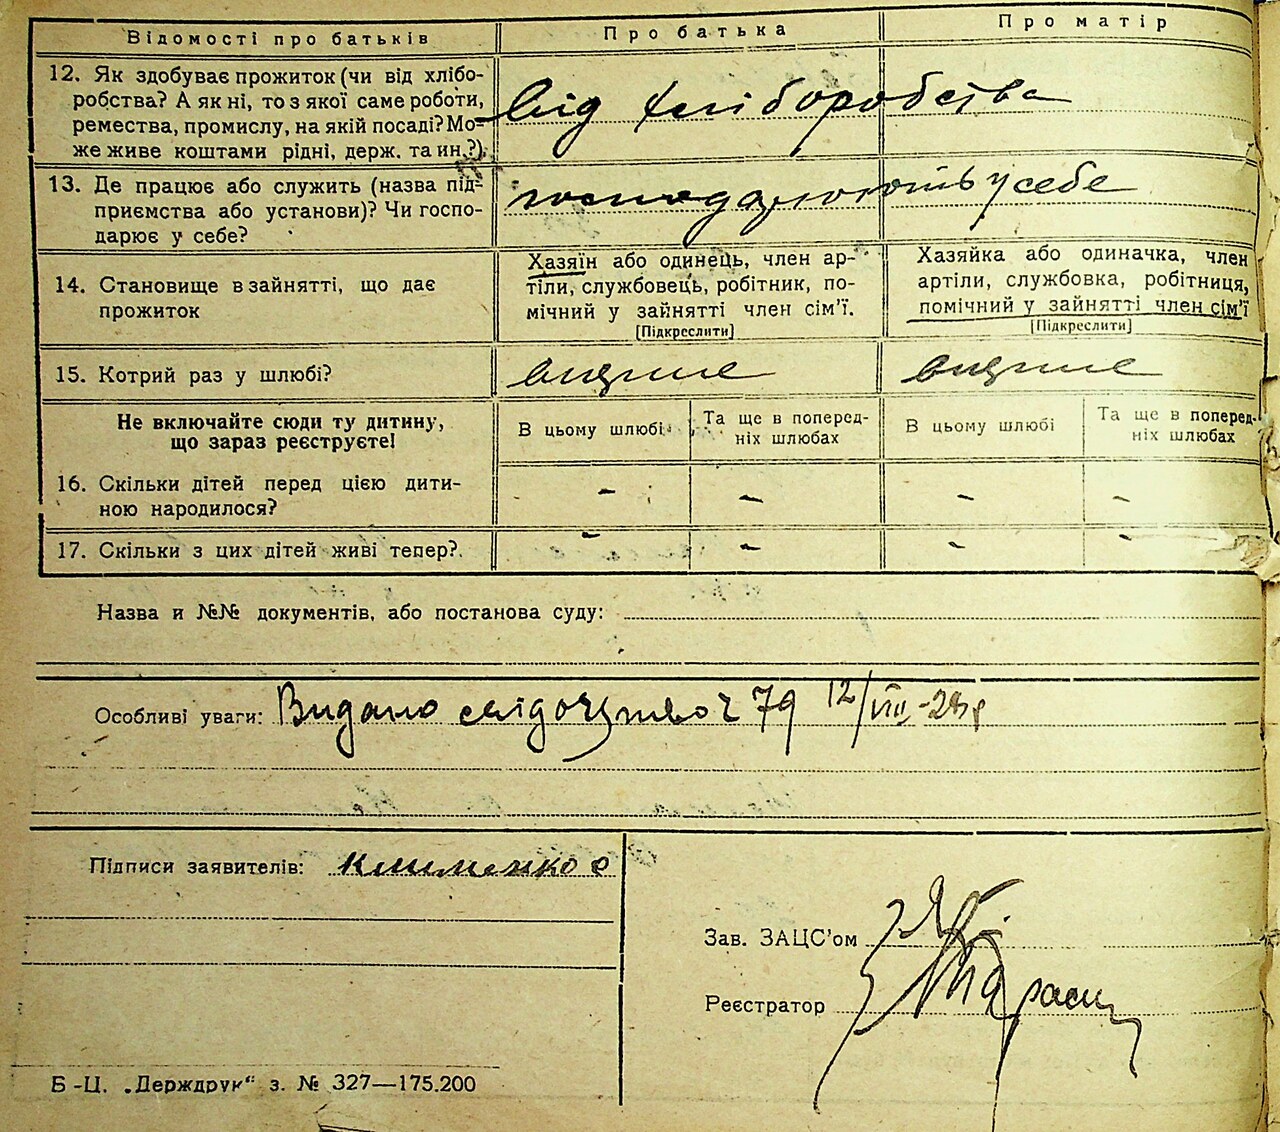 Відомості про батьків
Про батька
Про матір
12. Як здобуває прожиток (чи від хлібо-
робства? А як ні, то з якої саме роботи,
ремества, промислу, на якій посаді? Мо-
же живе коштами рідні, держ. та ин.?)
від хліборобства
13. Де працює або служить (назва під-
приємства або установи)? Чи госпо-
дарює у себе?
господарюють у себе
14. Становище в зайнятті, що дає
прожиток
Хазяїн або одинець, член ар-
тіли, службовець, робітник, по-
мічний у зайнятті член сім'ї.
[Підкреслити]
Хазяйка або одиначка, член
артіли, службовка, робітниця,
помічний у зайнятті член сім'ї
[Підкреслити]
15. Котрий раз у шлюбі?
вперше
вперше
Не включайте сюди ту дитину,
що зараз реєструєте!
В цьому шлюбі
Та ще в поперед-
ніх шлюбах
В цьому шлюбі
Та ще в поперед-
ніх шлюбах
16. Скільки дітей перед цією дити-
ною народилося?
- - - -
17. Скільки з цих дітей живі тепер?
- - - -
Назва и №№ документів, або постанова суду:
Особливі уваги: Видано свідоцтво ч 79 12/VIII-28р
Підписи заявителів: Клименко
Зав. ЗАЦС'ом
Реєстратор
Б-Ц. „Держдрук“ з. № 327—175.200